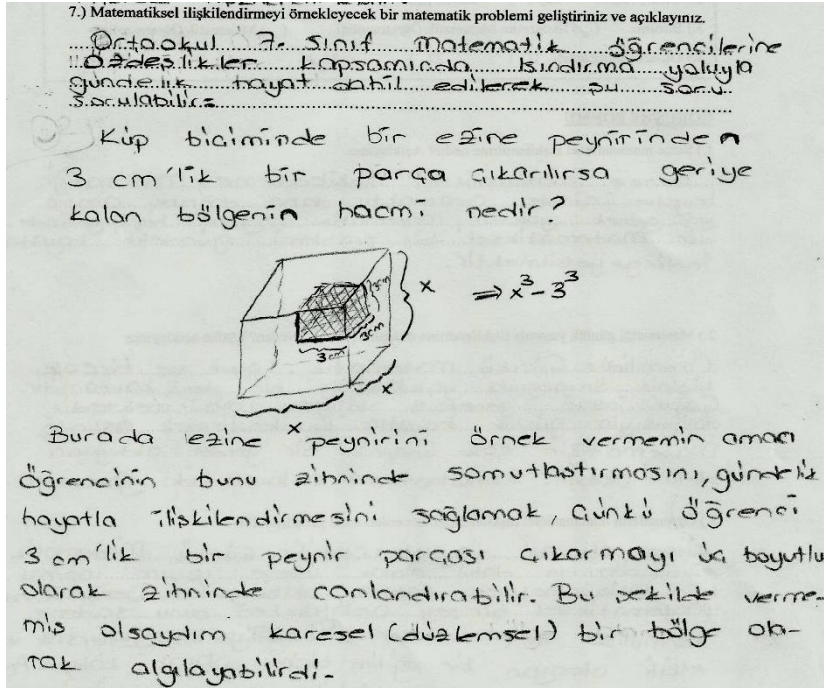 7.) Matematiksel ilişkilendirmeyi örnekleyecek bir matematik problemi geliştiriniz ve açıklayınız.
Ortaokul 7. sınıf matematik öğrencilerine
özdeşlikler kapsamında ısındırma yoluyla
gündelik hayat dahil edilerek şu soru
sorulabilir:
Küp biçiminde bir ezine peynirinden
3 cm'lik bir parça çıkarılırsa geriye
kalan bölgenin hacmi nedir?
3cm
3cm
3cm
x
x
x
⇒ x³ - 3³
Burada ezine peynirini örnek vermemin amacı
öğrencinin bunu zihninde somutlaştırmasını, gündelik
hayatla ilişkilendirmesini sağlamak, çünkü öğrenci
3 cm'lik bir peynir parçası çıkarmayı üç boyutlu
olarak zihninde canlandırabilir. Bu şekilde verme-
miş olsaydım karesel (düzlemsel) bir bölge ola-
rak algılayabilirdi.